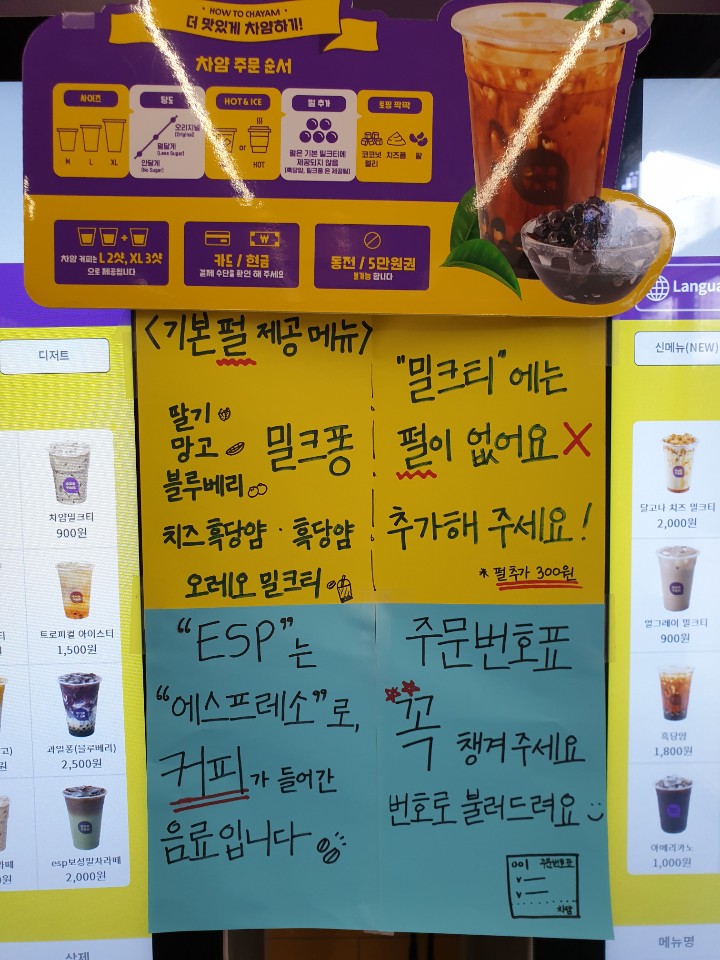 HOW TO CHAYAM
더 맛있게 차얌하기!
차얌 주문 순서
사이즈
M L XL
당도
오리지널
(Original)
덜달게
(Less Sugar)
안달게
(No Sugar)
HOT & ICE
or
HOT
펄 추가
펄은 기본 밀크티에
제공되지 않음
(흑당얌, 밀크퐁 은 제공됨)
토핑 팍팍
코코넛
젤리
치즈폼
팥
차얌 커피는 L 2샷, XL 3샷
으로 제공됩니다
카드 / 현금
결제 수단을 확인 해 주세요
동전 / 5만원권
불가능 합니다
<기본펄 제공 메뉴>
딸기
망고
블루베리
밀크퐁
치즈흑당얌 · 흑당얌
오레오 밀크티
"밀크티"에는
펄이 없어요 X
추가해 주세요!
* 펄추가 300원
"ESP"는
"에스프레소"로,
커피가 들어간
음료입니다
주문번호표
꼭 챙겨주세요
번호로 불러드려요
001 주문번호표
차얌
디저트
치얌밀크티
900원
트로피컬 아이스티
1,500원
과일퐁(블루베리)
2,500원
esp보성말차라떼
2,000원
Langua
신메뉴(NEW)
달고나 치즈 밀크티
2,000원
얼그레이 밀크티
900원
흑당얌
1,800원
아메리카노
1,000원
메뉴명